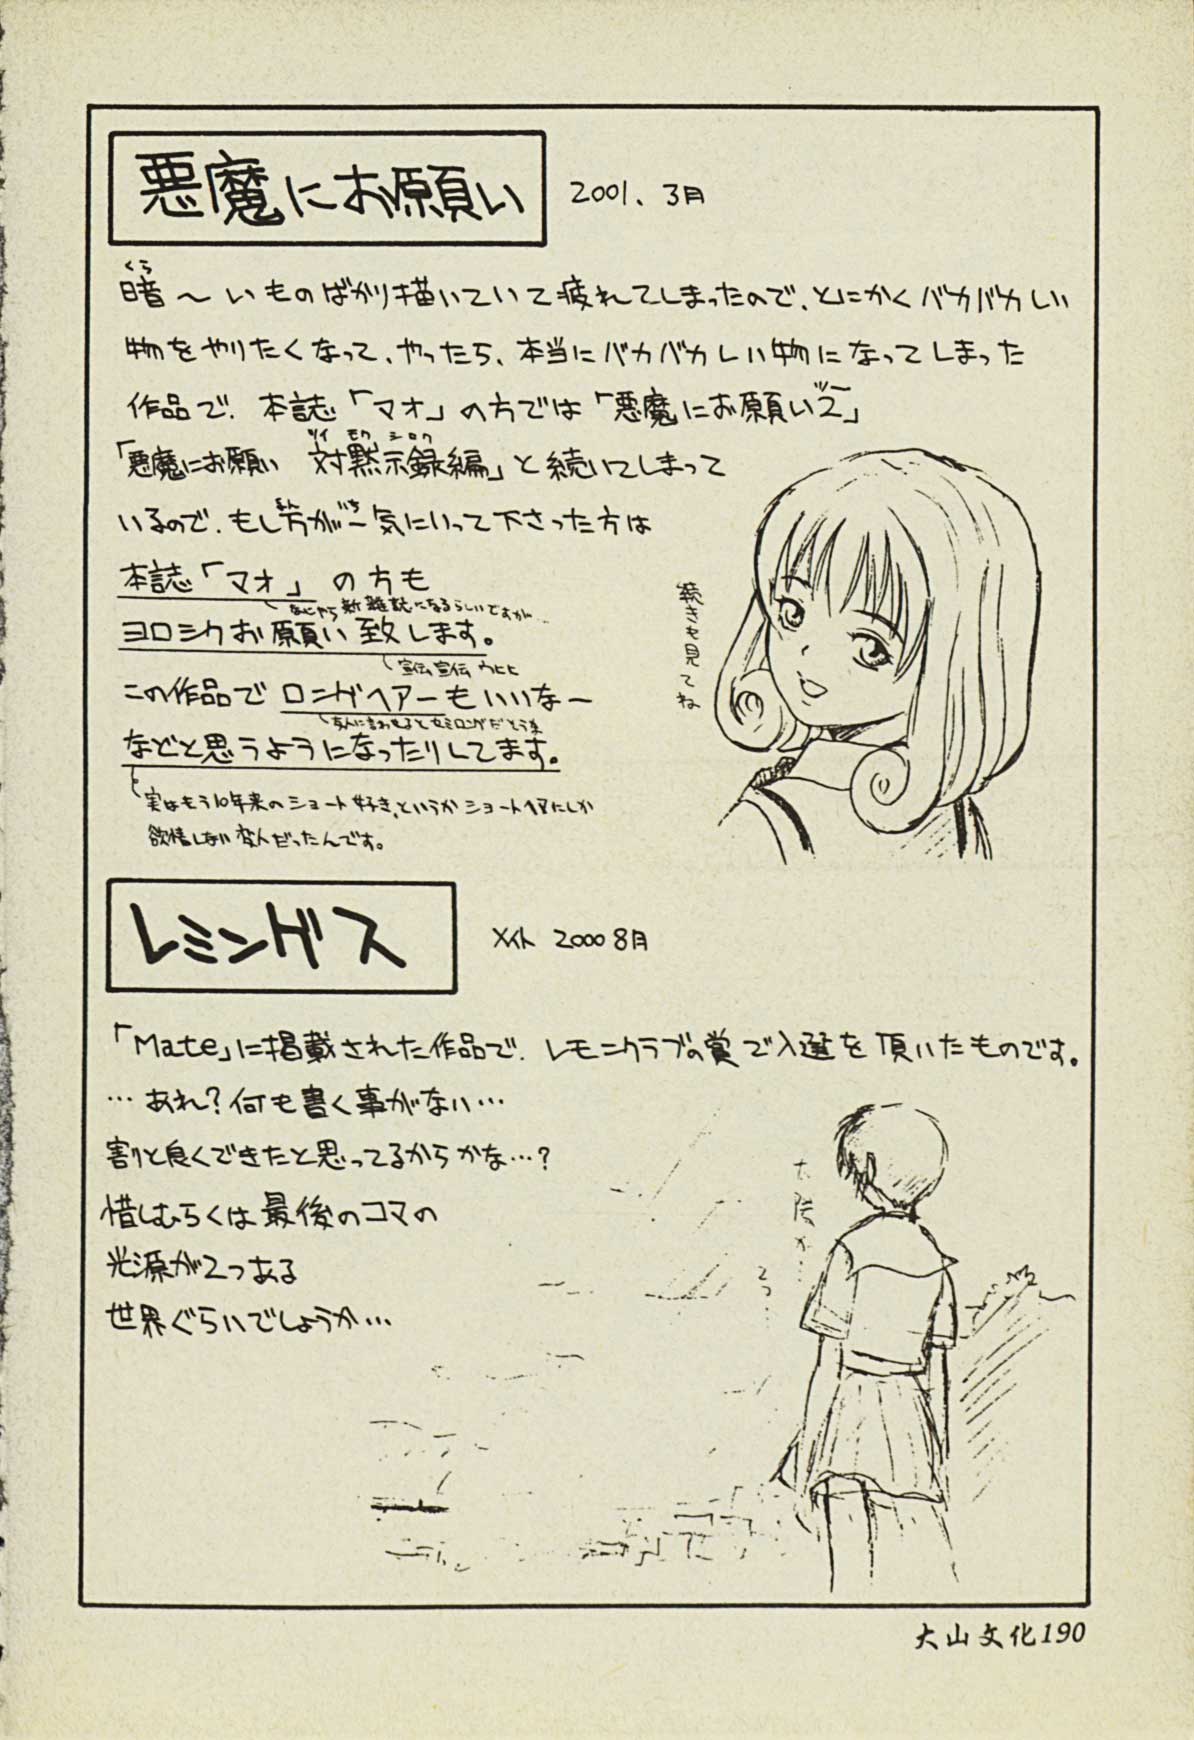 悪魔にお願い
2001、3月
暗〜いものばかり描いていて疲れてしまったので、とにかくバカバカしい
物をやりたくなって、やったら、本当にバカバカしい物になってしまった
作品で、本誌「マオ」の方では「悪魔にお願い2」
「悪魔にお願い 対黙示録編」と続いてしまって
いるので、もし万が一気にいって下さった方は
本誌「マオ」の方も
新雑誌になるらしいですが…
ヨロシクお願い致します。
宣伝宣伝 ウヒヒ
この作品でロングヘアーもいいな〜
などと思うようになったりしてます。
実はもう10年来のショート好き、というかショートヘアにしか
欲情しない変人だったんです。
続きも見てね
レミングス
メイト 2000 8月
「Mate」に掲載された作品で、レモンクラブの賞で入選を頂いたものです。
…あれ?何も書く事がない…
割と良くできたと思ってるからかな…?
惜しむらくは最後のコマの
光源が2つある
世界ぐらいでしょうか…
太陽が…
2つ…
大山文化190